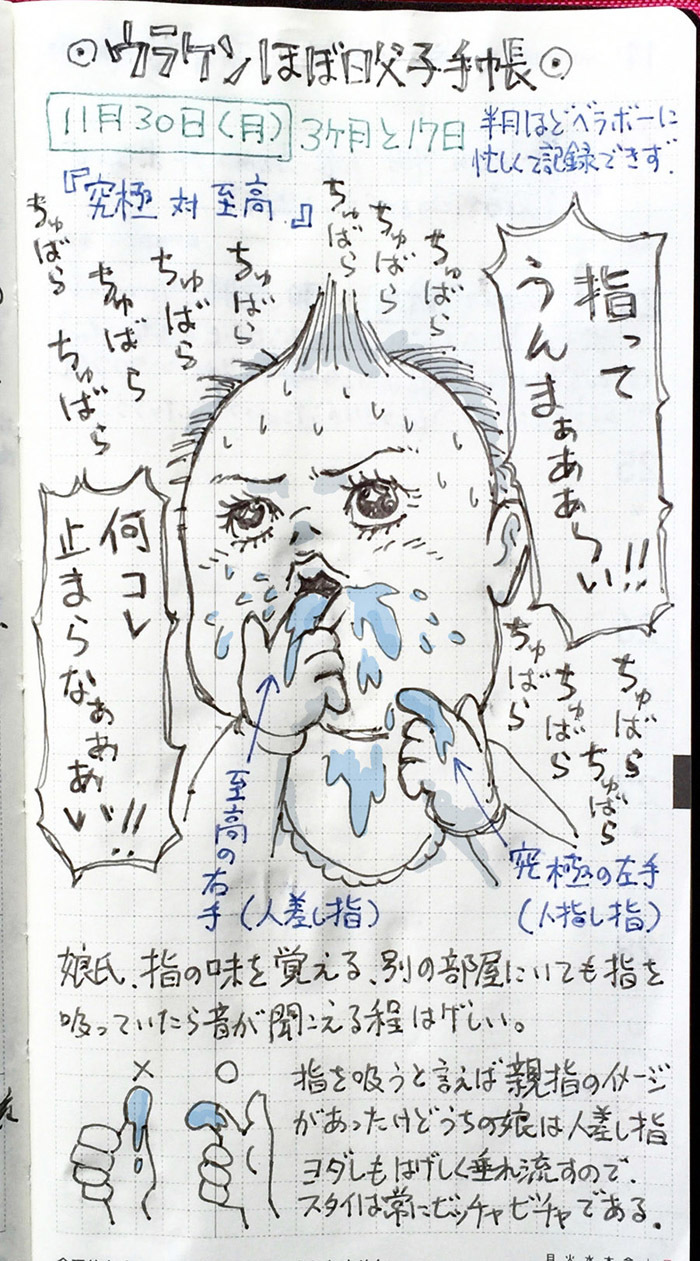 ◉ウラケンほぼ日父子手帳◉
11月30日(月) 3ケ月と17日
半月ほどベラボーに
忙しくて記録できず.
『究極 対 至高』
ちゅばら
ちゅばら
ちゅばら
ちゅばら
ちゅばら
ちゅばら
ちゅばら
ちゅばら
指って
うんまぁぁぁらい!!
何コレ
止まらなぁぁぁい!!
ちゅばら
ちゅばら
ちゅばら
ちゅばら
至高の右手(人差し指)
究極の左手
(人指し指)
娘氏、指の味を覚える、別の部屋にいても指を
吸っていたら音が聞こえる程はげしい。
× ○
指を吸うと言えば親指のイメージ
があったけどうちの娘は人差し指
ヨダレもはげしく垂れ流すので、
スタイは常にビッチャビチャである.